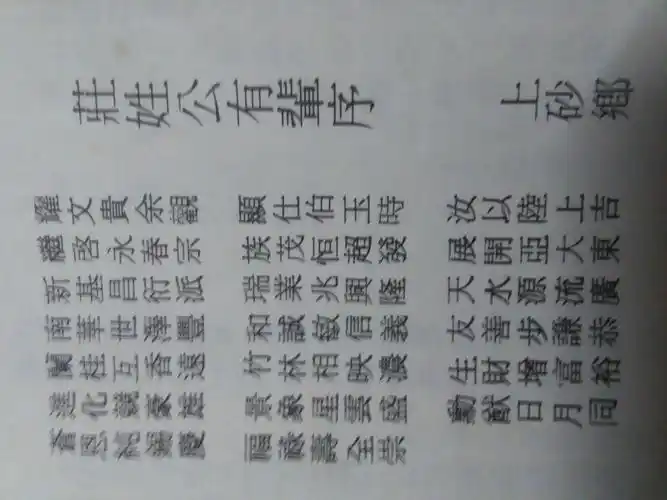 莊姓公有輩序
上砂鄉
耀文貴余觀
繼啓永春宗
新基昌衍派
南華世澤豐
蘭桂互香遠
進化競豪雄
恩慶
顯仕伯玉時
族茂恒超發
瑞業兆興隆
和誠敏信義
竹林相映濃
景象星雲盛
福蔵壽全崇
汝以陸上吉
展開亞大東
天水源流廣
友善步謙恭
生財增富裕
勳猷日月同